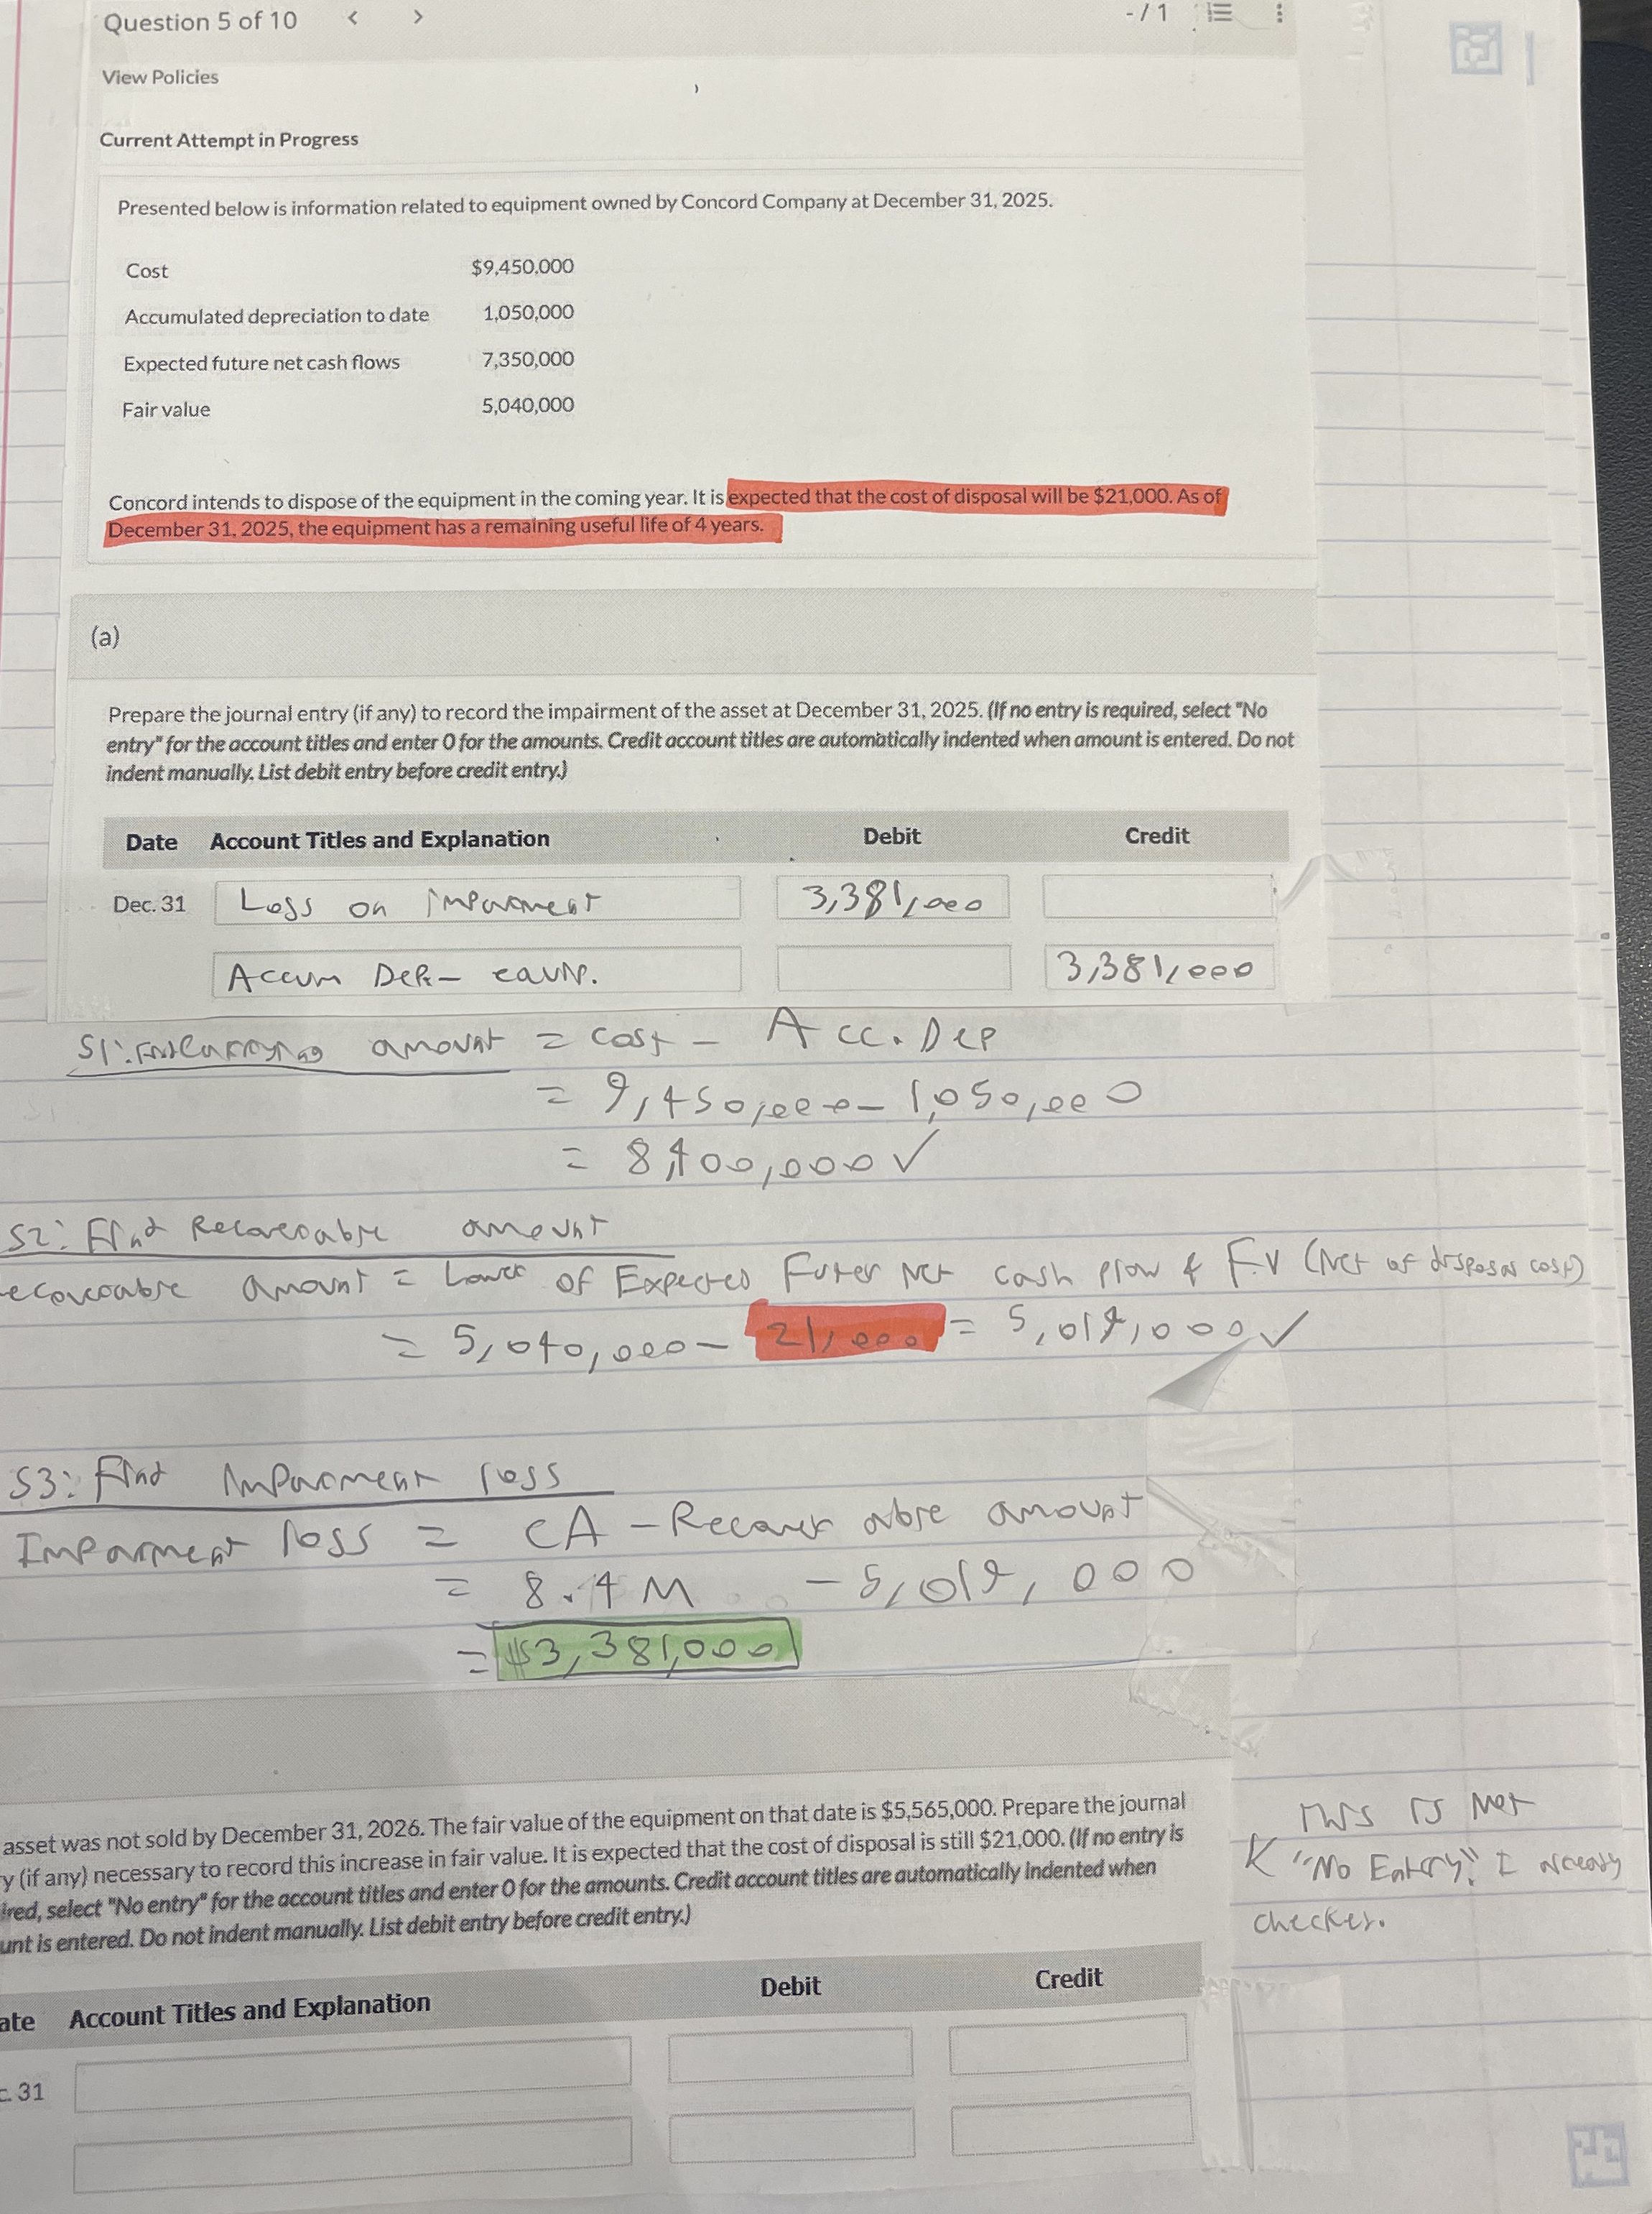 Question 5 of 10 < > - / 1
View Policies
Current Attempt in Progress
Presented below is information related to equipment owned by Concord Company at December 31, 2025.
Cost $9,450,000
Accumulated depreciation to date 1,050,000
Expected future net cash flows 7,350,000
Fair value 5,040,000
Concord intends to dispose of the equipment in the coming year. It is expected that the cost of disposal will be $21,000. As of
December 31, 2025, the equipment has a remaining useful life of 4 years.
(a)
Prepare the journal entry (if any) to record the impairment of the asset at December 31, 2025. (If no entry is required, select "No
entry" for the account titles and enter 0 for the amounts. Credit account titles are automatically indented when amount is entered. Do not
indent manually. List debit entry before credit entry.)
Date Account Titles and Explanation Debit Credit
Dec. 31 Loss on impairment 3,381,000
Accum Dep. - equip. 3,381,000
S1: Find Carrying amount = cost - Acc. Dep
= 9,450,000 - 1,050,000
= 8,400,000 ✓
S2: Find Recoverable amount
ecoverable amount = Lower of Expected Futer Net cash flow & F.V (Net of disposal cost)
= 5,040,000 - 21,000 = 5,019,000 ✓
S3: Find Impairment loss
Impairment loss = CA - Recoverable amount
= 8.4 M - 5,019,000
= $3,381,000
asset was not sold by December 31, 2026. The fair value of the equipment on that date is $5,565,000. Prepare the journal
y (if any) necessary to record this increase in fair value. It is expected that the cost of disposal is still $21,000. (If no entry is
ired, select "No entry" for the account titles and enter 0 for the amounts. Credit account titles are automatically indented when
unt is entered. Do not indent manually. List debit entry before credit entry.)
This is Not
"No Entry". I already
checked.
ate Account Titles and Explanation Debit Credit
c. 31